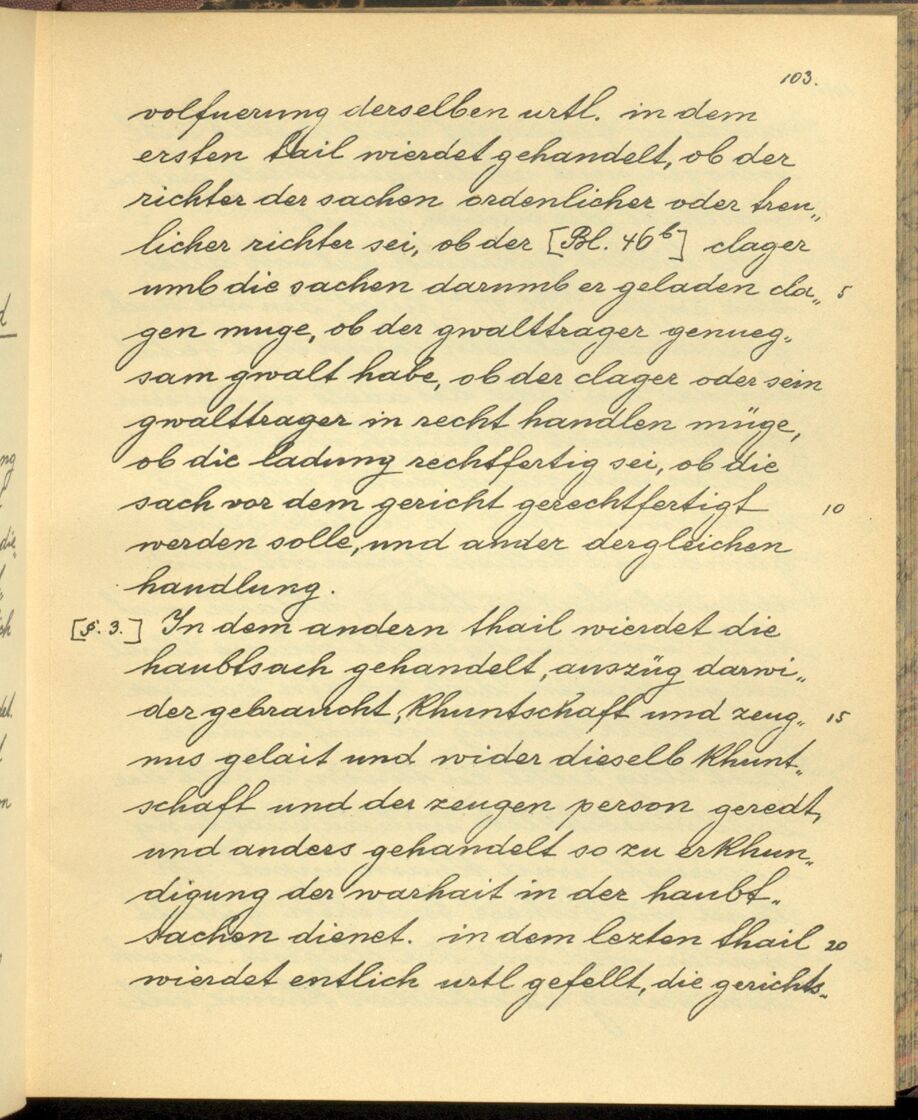 103.
volfuerung derselben urtl. in dem
ersten tail wierdet gehandelt, ob der
richter der sachen ordenlicher oder treu„
licher richter sei, ob der [Bl. 46ᵇ] clager
umb die sachen darumb er geladen cla„ 5
gen muge, ob der gwalttrager genueg„
sam gwalt habe, ob der clager oder sein
gwalttrager in recht handlen müge,
ob die ladung rechtfertig sei, ob die
sach vor dem gericht gerechtfertigt 10
werden solle, und ander dergleichen
handlung.
[§. 3.] In dem andern thail wierdet die
haubtsach gehandelt, auszüg darwi„
der gebraucht, khuntschaft und zeug„ 15
nus gelait und wider dieselb khunt„
schaft und der zeugen person geredt,
und anders gehandelt so zu erkhun„
digung der warhait in der haubt„
sachen dienet. in dem lezten thail 20
wierdet entlich urtl gefellt, die gerichts„